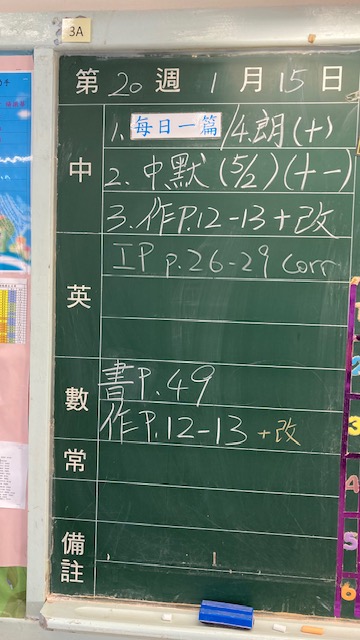 3A
第 20 週 1 月 15 日
中
1. 每日一篇 / 4. 朗(十)
2. 中默(5/2)(十一)
3. 作P.12-13+改
英
IP p.26-29 corr
數
書P.49
作P.12-13 +改
常
備註
1
2
3
4
5
6